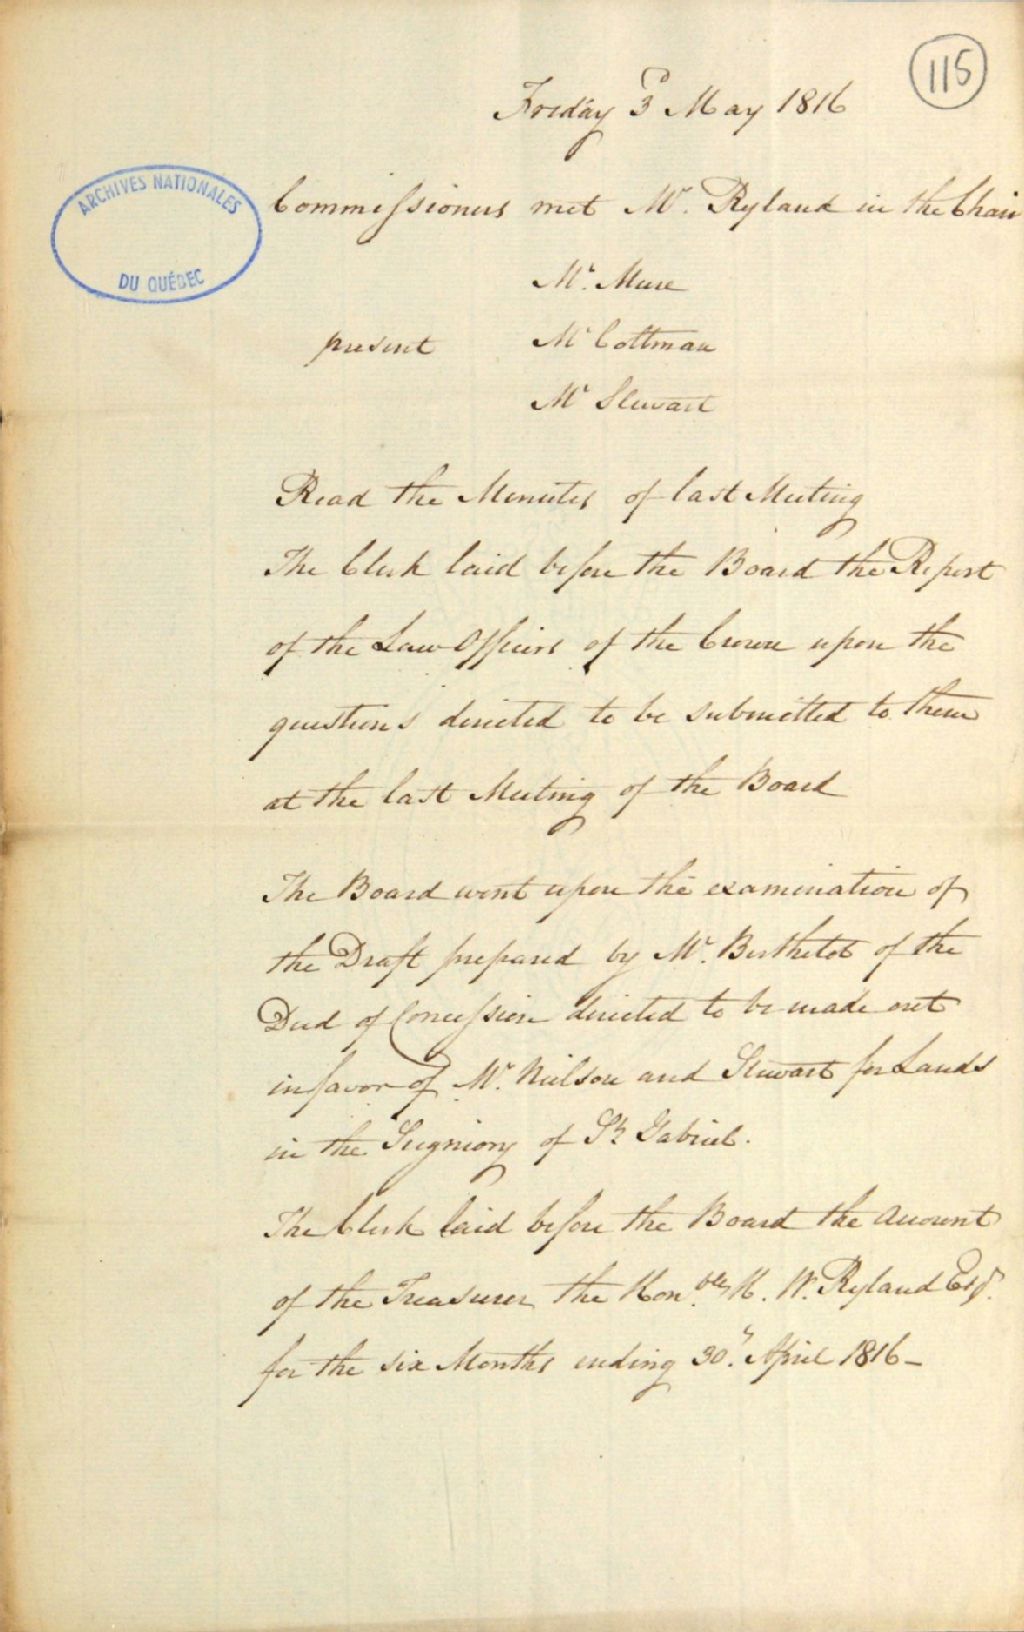 115
Friday 3d May 1816
ARCHIVES NATIONALES
DU QUÉBEC
Commissioners met Mr. Ryland in the Chair
Mr. Mure
present Mr Coltman
Mr Stewart
Read the Minutes of last Meeting
The Clerk laid before the Board the Report
of the Law Officers of the Crown upon the
questions directed to be submitted to them
at the last Meeting of the Board
The Board went upon the examination of
the Draft prepared by Mr. Berthelot of the
Deed of Concession directed to be made out
in favor of Mr. Neilson and Stewart for Lands
in the Seigniory of St. Gabriel.
The Clerk laid before the Board the Account
of the Treasurer the Honble H. W. Ryland Esqr.
for the six Months ending 30th April 1816 -